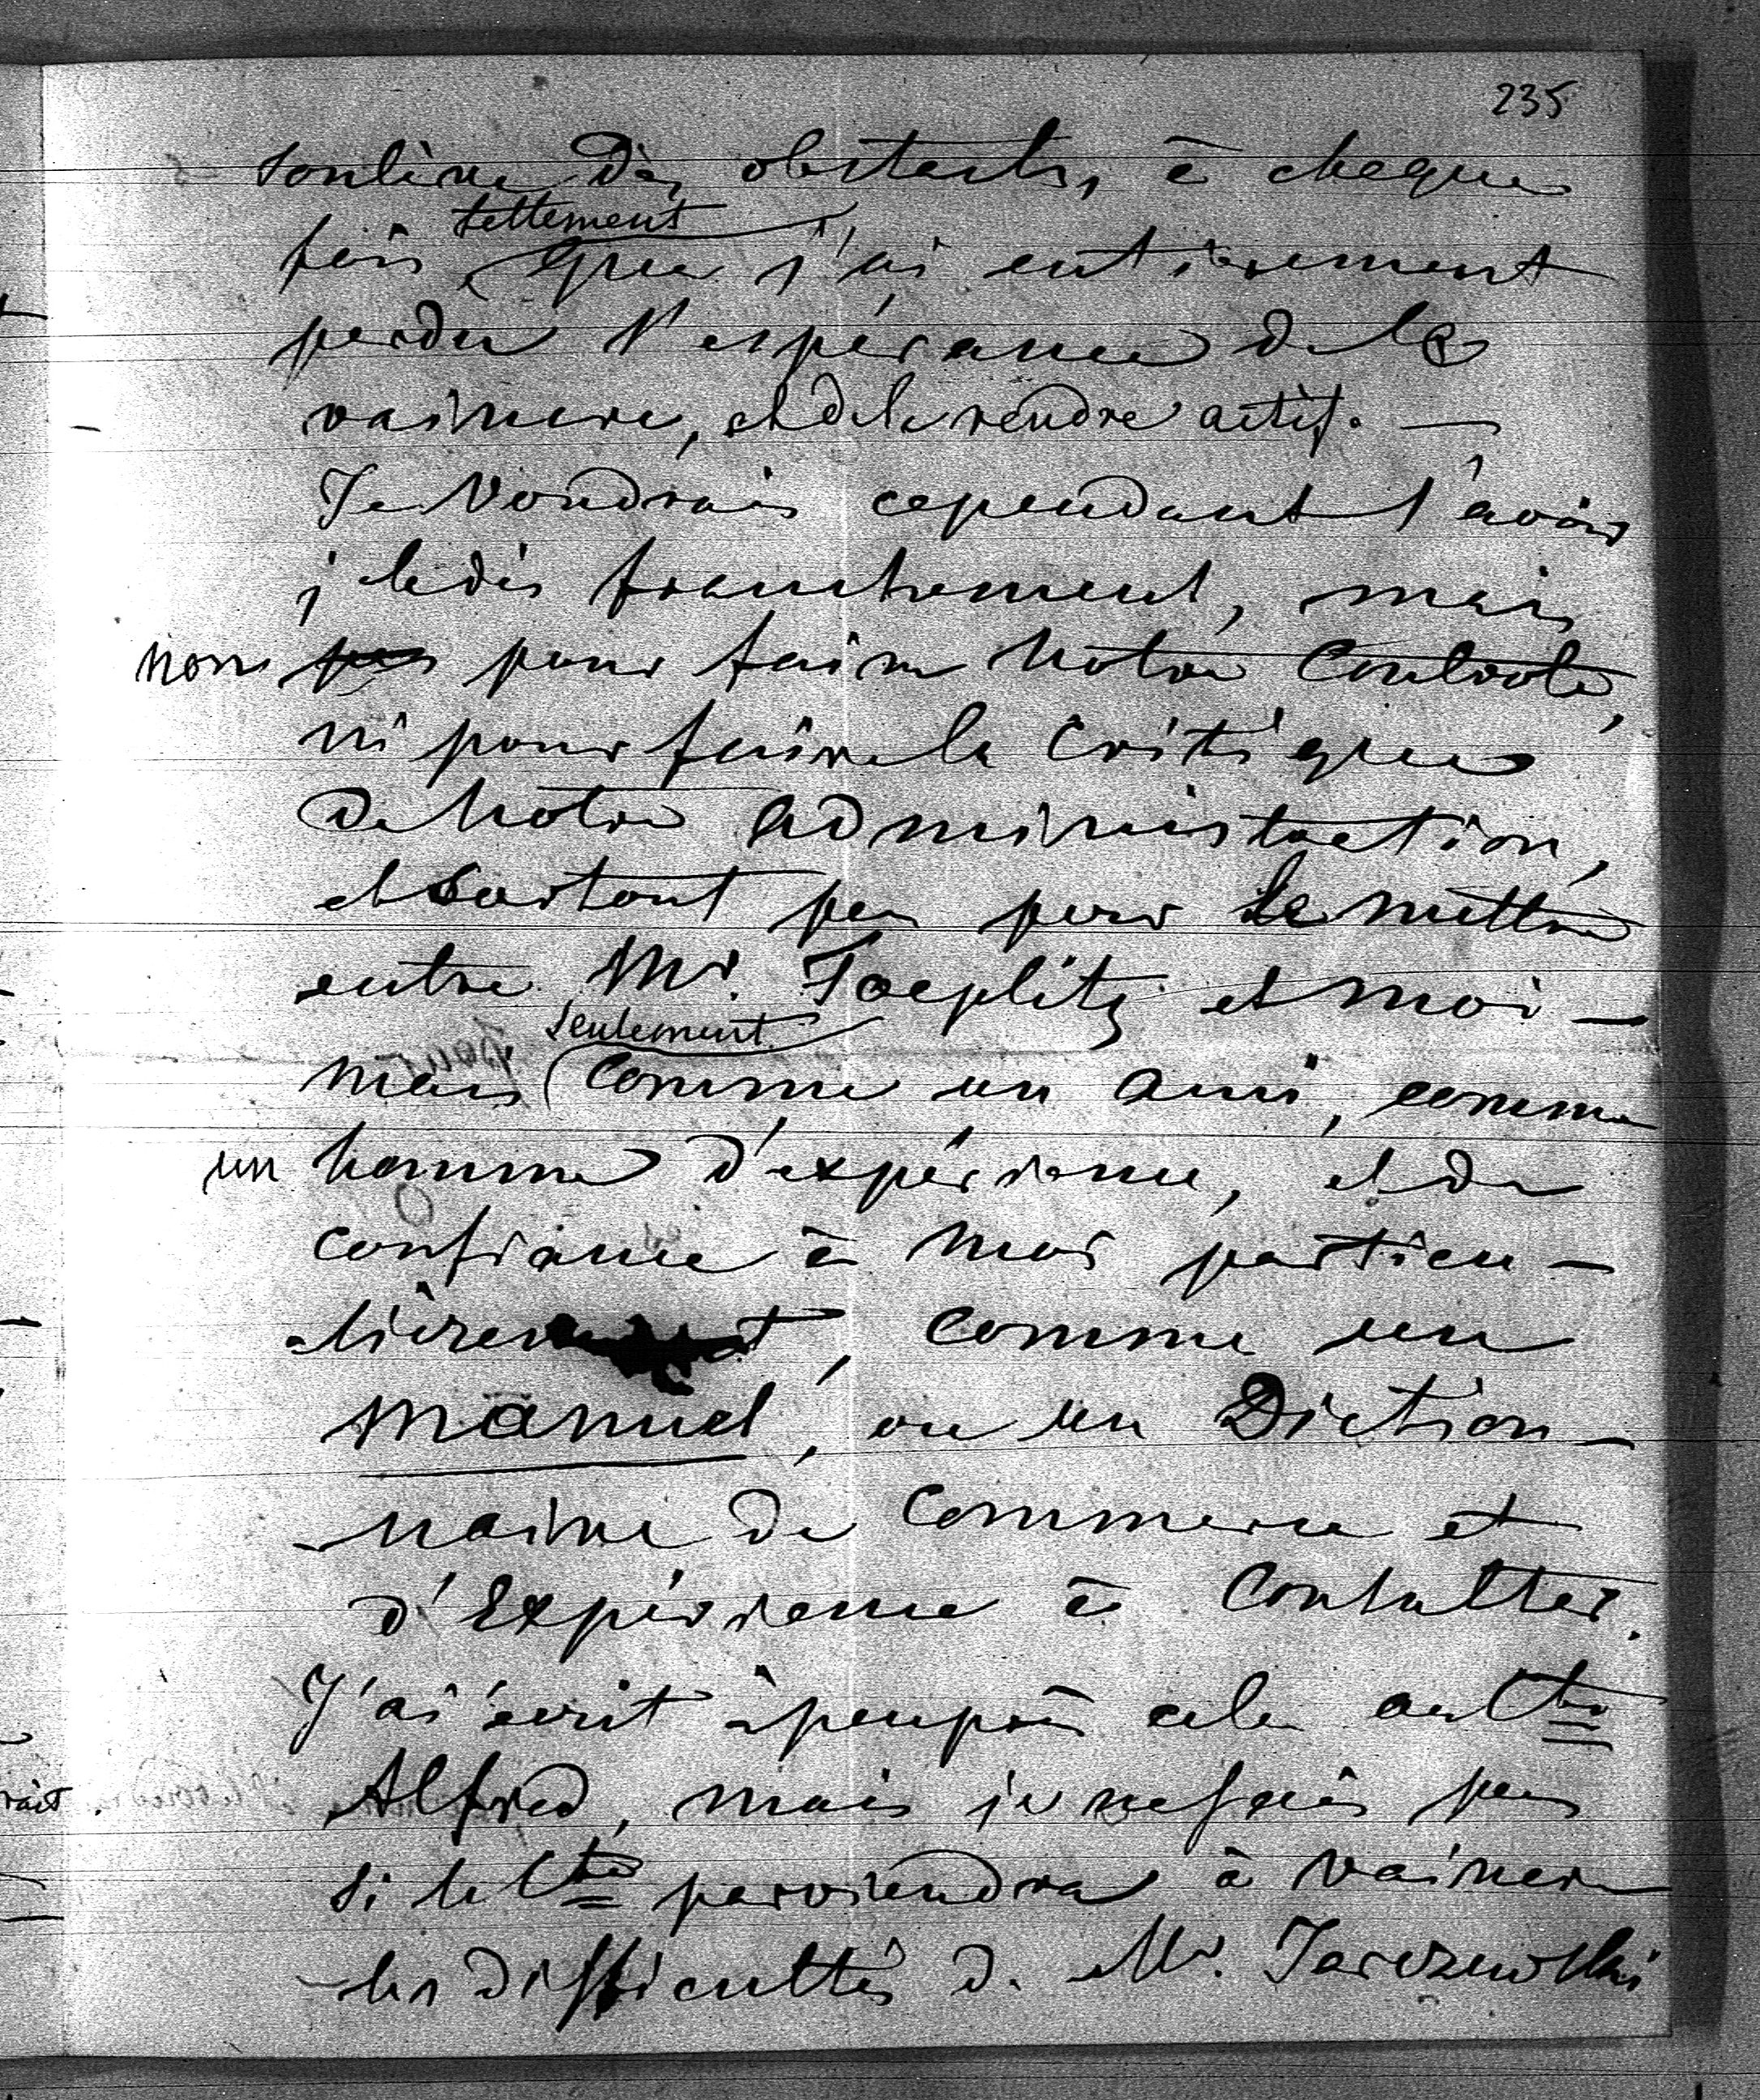 235
soulève des obstacles, à chaque
fois tellement que j'ai entièrement
perdu l'espérance de le
vaincre, et de le rendre actif. —
Je Voudrais cependant l'avoir
j le dis franchement, mais
non pas pour faire notre Controle,
ni pour faire la Critique
de notre administraction,
et surtout pas pour le mettre
entre Mr. Toeplitz et moi —
mais seulement comme un ami, comme
un homme d'expérience, et de
confiance à moi particu-
lièrement, comme un
manuel, ou un Diction-
naire de Commerce et
d'Expérience à Consulter.
J'ai écrit àpeuprès cela au Cte
Alfred, mais je ne sais pas
si le Cte parviendra à vaincre
les difficultés d. Mr. Jarczewski